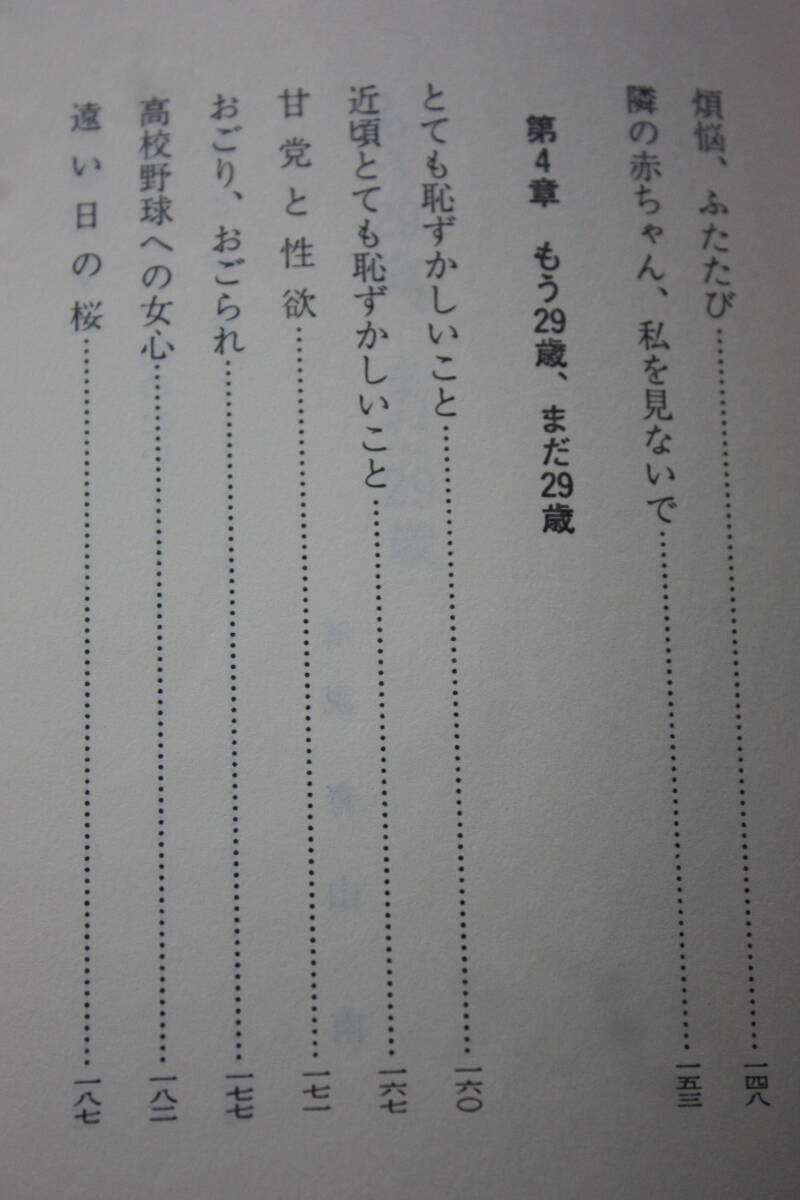 煩悩、ふたたび……一四八
隣の赤ちゃん、私を見ないで……一五三
第4章　もう29歳、まだ29歳
とても恥ずかしいこと……一六〇
近頃とても恥ずかしいこと……一六七
甘党と性欲……一七一
おごり、おごられ……一七七
高校野球への女心……一八二
遠い日の桜……一八七